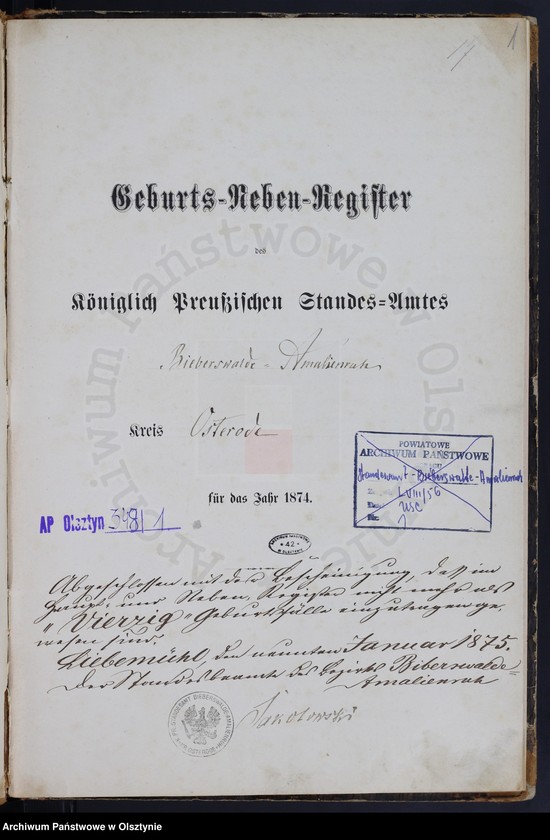 1
Geburts-Neben-Register
des
Königlich Preußischen Standes-Amtes
Bieberswalde - Amalienruh
Kreis Osterode
für das Jahr 1874.
POWIATOWE
ARCHIWUM PAŃSTWOWE
Standesamt-Bieberswalde-Amalienruh
LVIII/56
USC
1
AP Olsztyn 348/1
42
Abgeschlossen mit der Bescheinigung, daß im
Haupt- und Neben-Register nicht mehr als
"Vierzig" Geburtsfälle einzutragen ge-
wesen sind.
Liebemühl, den neunten Januar 1875.
Der Standesbeamte des Bezirks Biberswalde-
Amalienruh
Archiwum Państwowe w Olsztynie
Archiwum Państwowe w Olsztynie